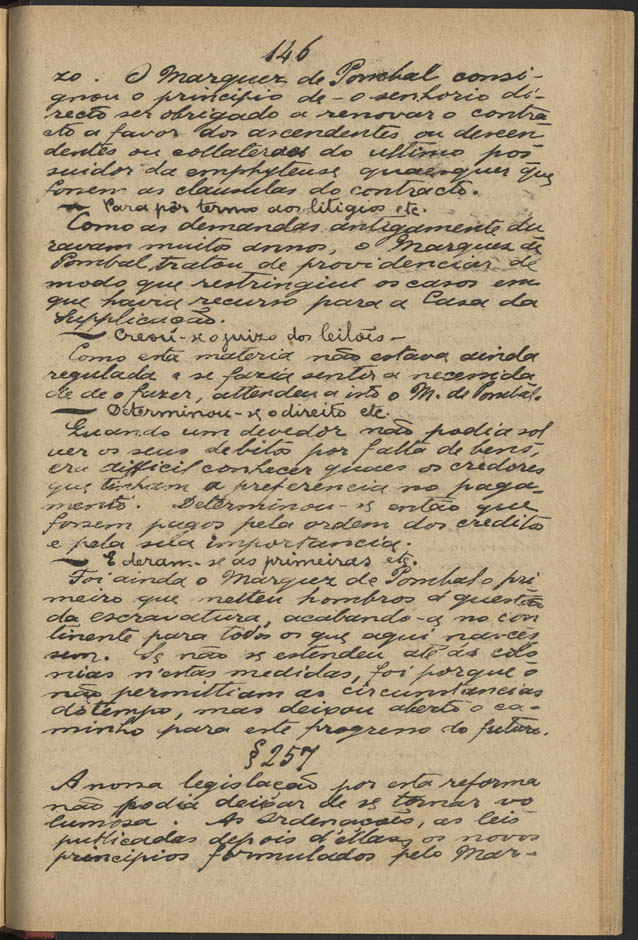 146
zo. O Marquez de Pombal consi-
gnou o principio de - o senhorio di-
recto ser obrigado a renovar o contra
cto a favor dos ascendentes ou descen
dentes ou collateraes do ultimo pos
suidor da emphyteuse quaesquer que
fossem as clausulas do contracto.
— Para pôr termo aos litigios etc.
Como as demandas antigamente du
ravam muitos annos, o Marquez de
Pombal, tratou de providenciar de
modo que restringiu os casos em
que havia recurso para a Casa da
Supplicação.
— Creou-se o juizo dos leilões -
Como esta materia não estava ainda
regulada e se fazia sentir a necessida
de de o fazer, attendeu a isto o M. de Pombal.
— Determinou-se o direito etc.
Quando um devedor não podia sol
ver os seus debitos por falta de bens,
era difficil conhecer quaes os credores
que tinham a preferencia no paga-
mento. Determinou-se então que
fossem pagos pela ordem dos creditos
e pela sua importancia.
— E deram-se as primeiras etc.
Foi ainda o Marquez de Pombal o pri
meiro que metteu hombros á questão
da escravatura, acabando-a no con
tinente para todos os que aqui nasces
sem. Se não se estendeu até ás colo
nias n'estas medidas, foi porque o
não permittiam as circumstancias
do tempo, mas deixou aberto o ca-
minho para este progresso do futuro.
§ 257
A nossa legislação por esta reforma
não podia deixar de se tornar vo
lumosa. As Ordenações, as leis
publicadas depois d'ellas, os novos
principios formulados pelo Mar-